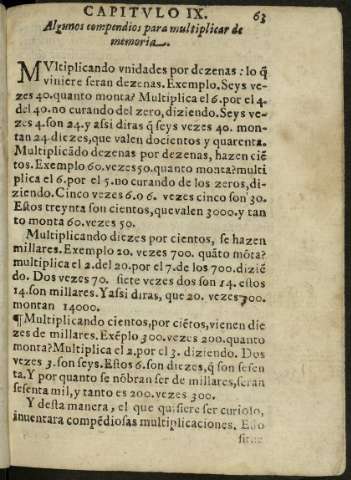 CAPITVLO IX. 63
Algunos compendios para multiplicar de
memoria.
MVltiplicando vnidades por dezenas: lo q̃
viniere seran dezenas. Exemplo. Seys ve-
zes 40. quanto monta? Multiplica el 6. por el 4.
del 40. no curando del zero, diziendo. Seys ve-
zes 4. son 24. y assi diras q̃ seys vezes 40. mon-
tan 24. diezes, que valen docientos y quarenta.
Multiplicãdo dezenas por dezenas, hazen ciẽ
tos. Exemplo 60. vezes 50. quanto monta? multi
plica el 6. por el 5. no curando de los zeros, di-
ziendo. Cinco vezes 6. o 6. vezes cinco son 30.
Estos treynta son cientos, que valen 3000. y tan
to monta 60. vezes 50.
Multiplicando diezes por cientos, se hazen
millares. Exemplo 20. vezes 700. quãto mõta?
multiplica el 2. del 20. por el 7. de los 700. diziẽ
do. Dos vezes 70. siete vezes dos son 14. estos
14. son millares. Y assi diras, que 20. vezes 700.
montan 14000.
¶ Multiplicando cientos, por ciẽtos, vienen die
zes de millares. Exẽplo 300. vezes 200. quanto
monta? Multiplica el 2. por el 3. diziendo. Dos
vezes 3. son seys. Estos 6. son diezes, q̃ son sesen
ta. Y por quanto se nõbran ser de millares, seran
sesenta mil, y tanto es 200. vezes 300.
Y desta manera, el que quisiere ser curioso,
inuentara compẽdiosas multiplicaciones. Esto